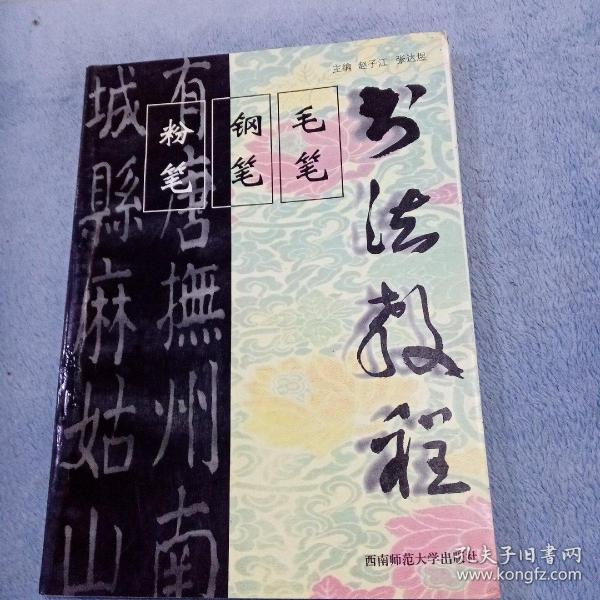 主编 赵子江 张达煜
书法教程
毛笔
钢笔
粉笔
有唐撫州南
城縣麻姑山
西南师范大学出版社
孔夫子旧书网
www.kongfz.com